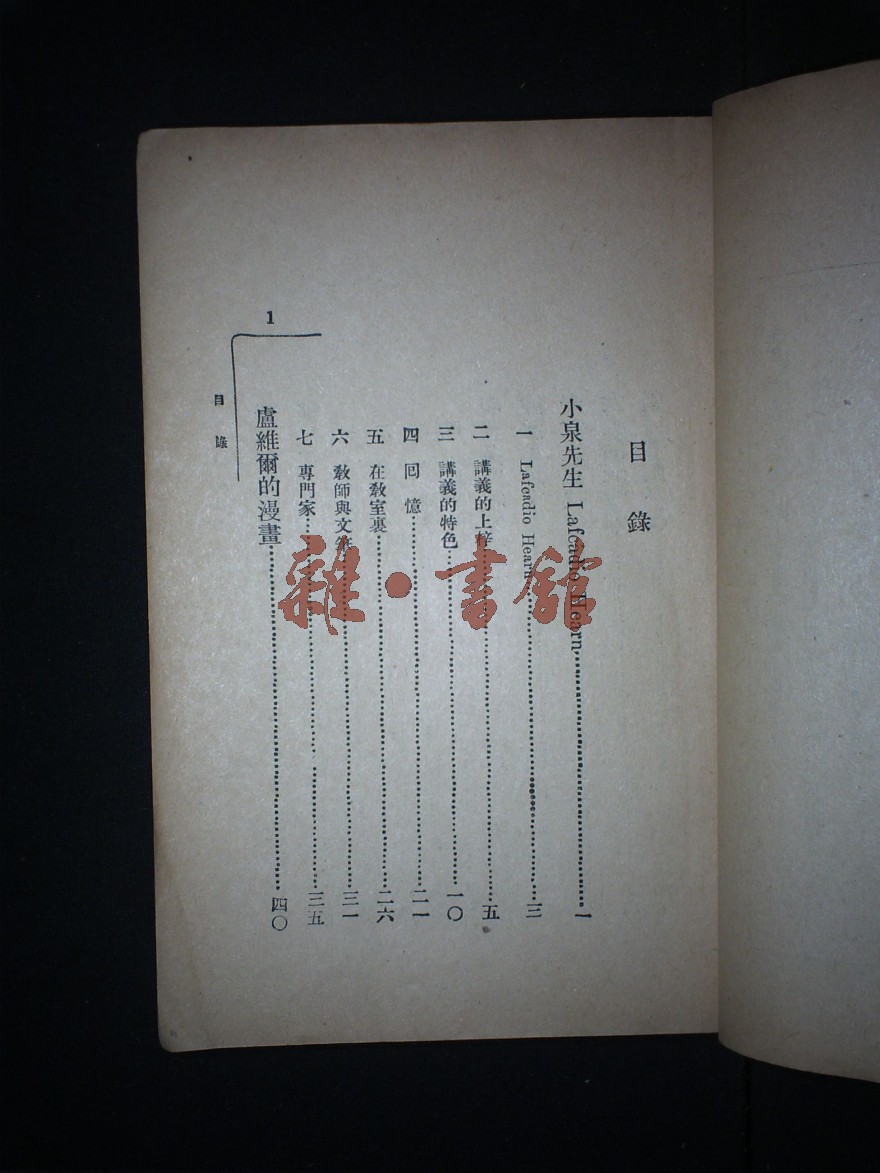 目錄
小泉先生 Lafcadio Hearn……一
一 Lafcadio Hearn……三
二 講義的上梓……五
三 講義的特色……一〇
四 回憶……二一
五 在教室裏……二六
六 教師與文……三一
七 專門家……三五
盧維爾的漫畫……四〇
1
目錄
雜·書館